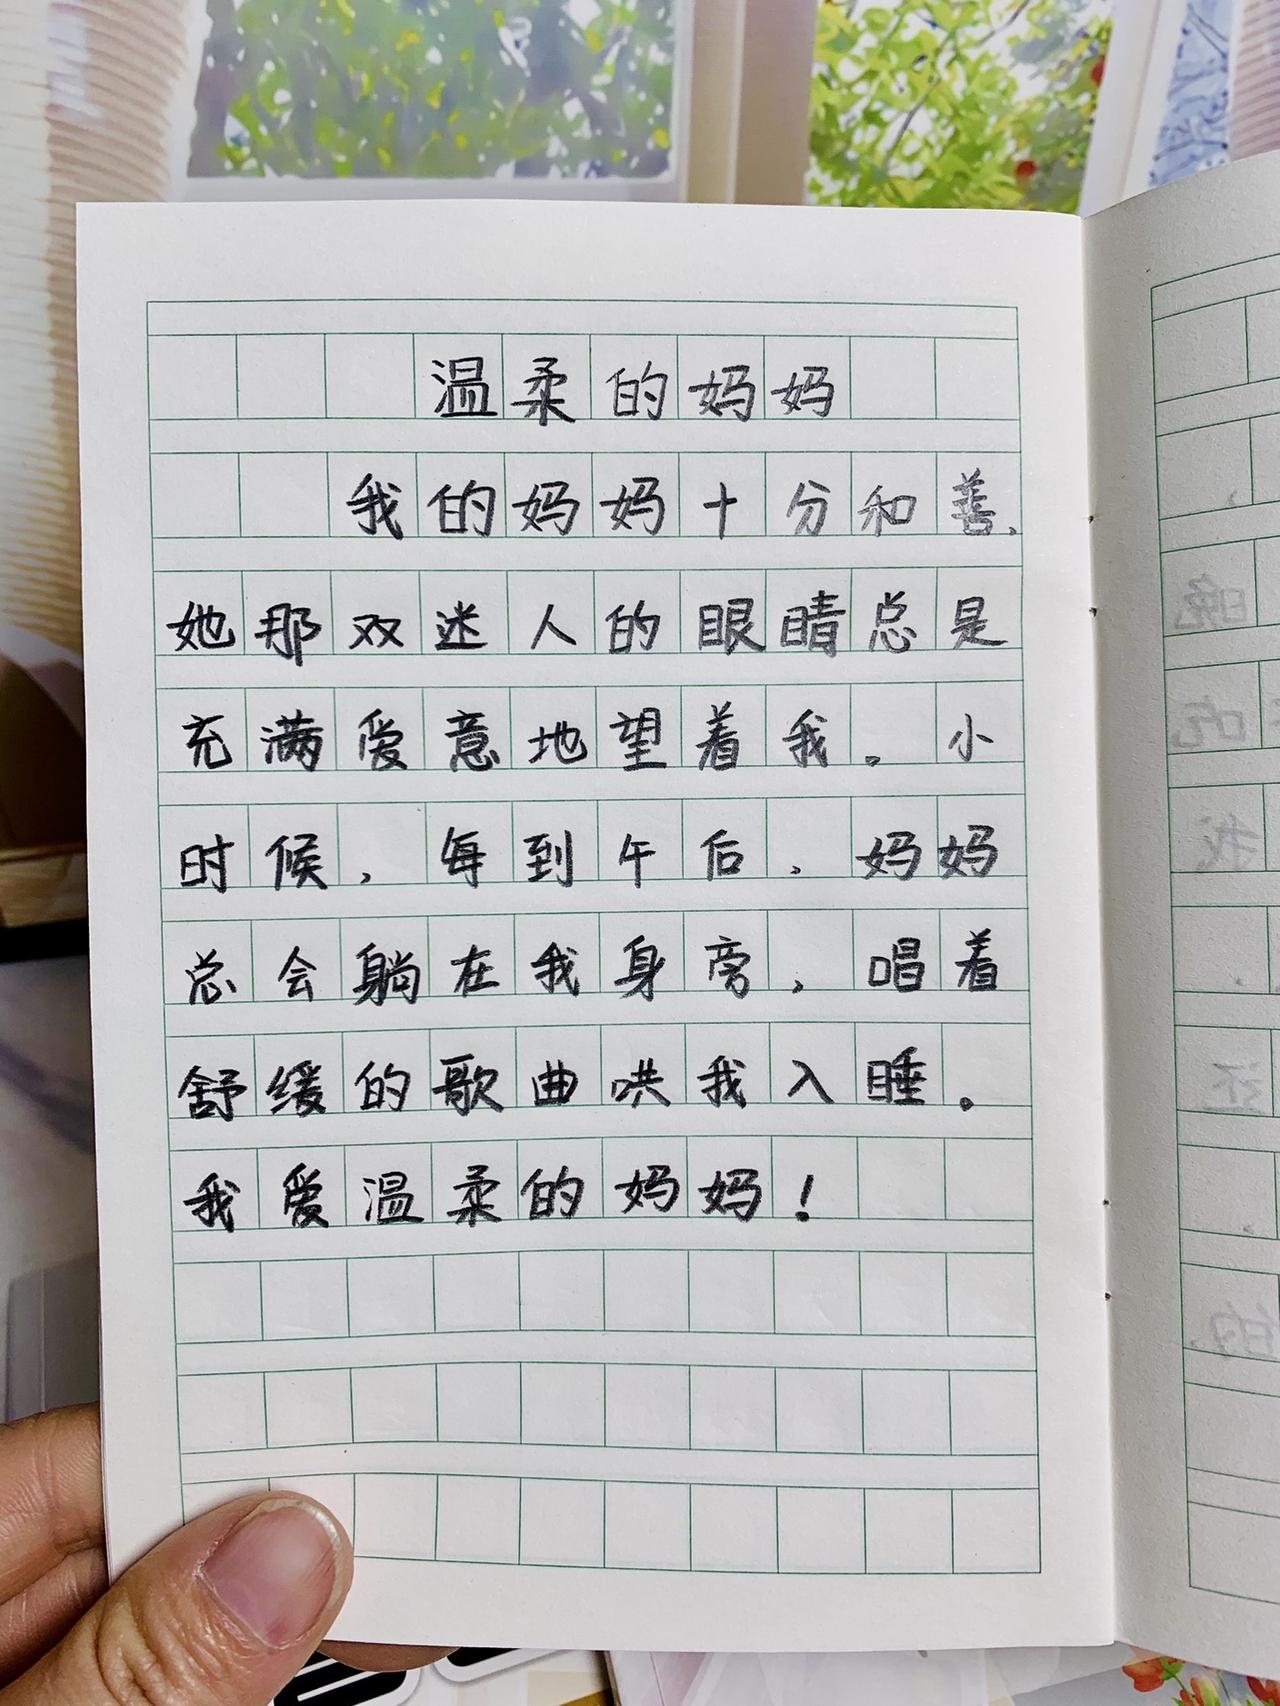 温柔的妈妈
我的妈妈十分和善，
她那双迷人的眼睛总是
充满爱意地望着我。小
时候，每到午后，妈妈
总会躺在我身旁，唱着
舒缓的歌曲哄我入睡。
我爱温柔的妈妈！